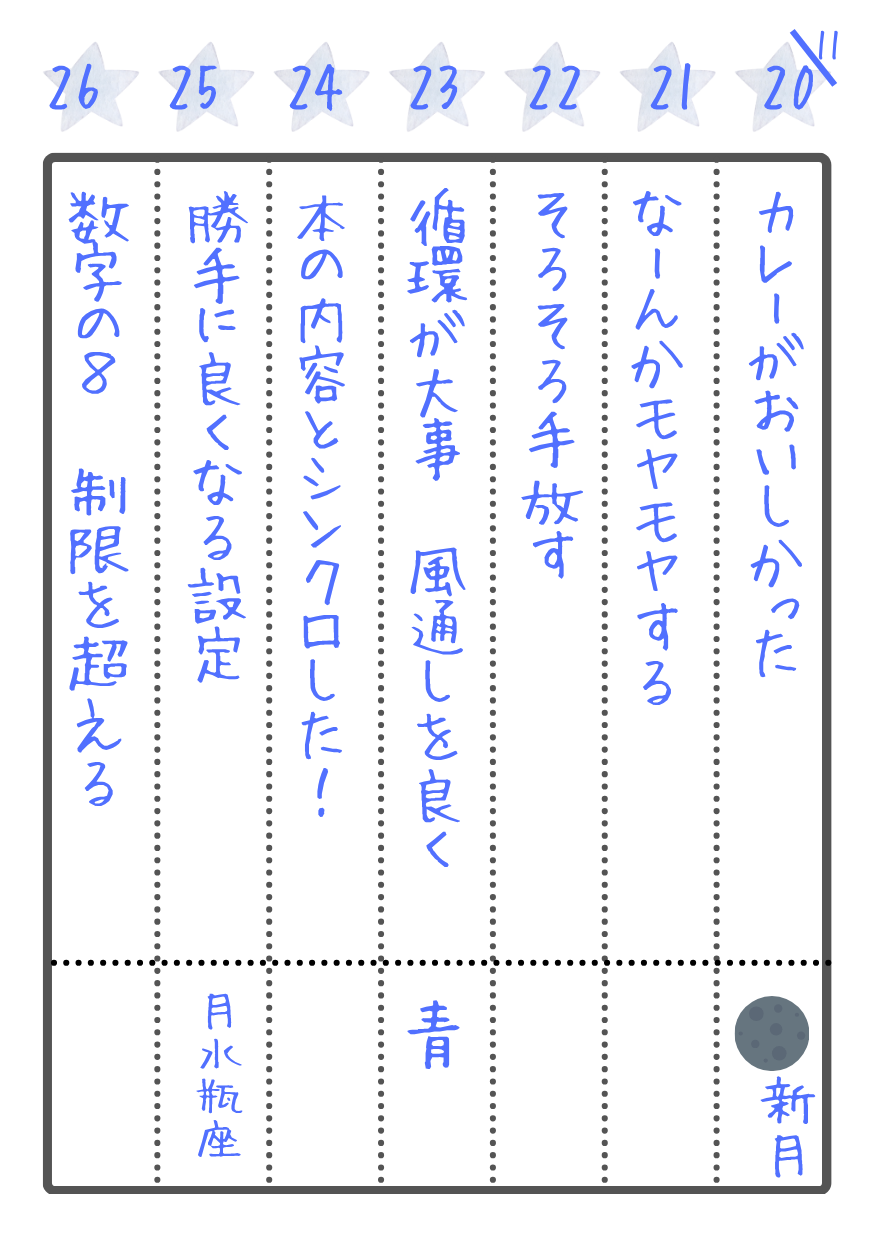 11
20
カレーがおいしかった
新月
21
なーんかモヤモヤする
22
そろそろ手放す
23
循環が大事 風通しを良く
青
24
本の内容とシンクロした!
25
勝手に良くなる設定
月水瓶座
26
数字の8 制限を超える